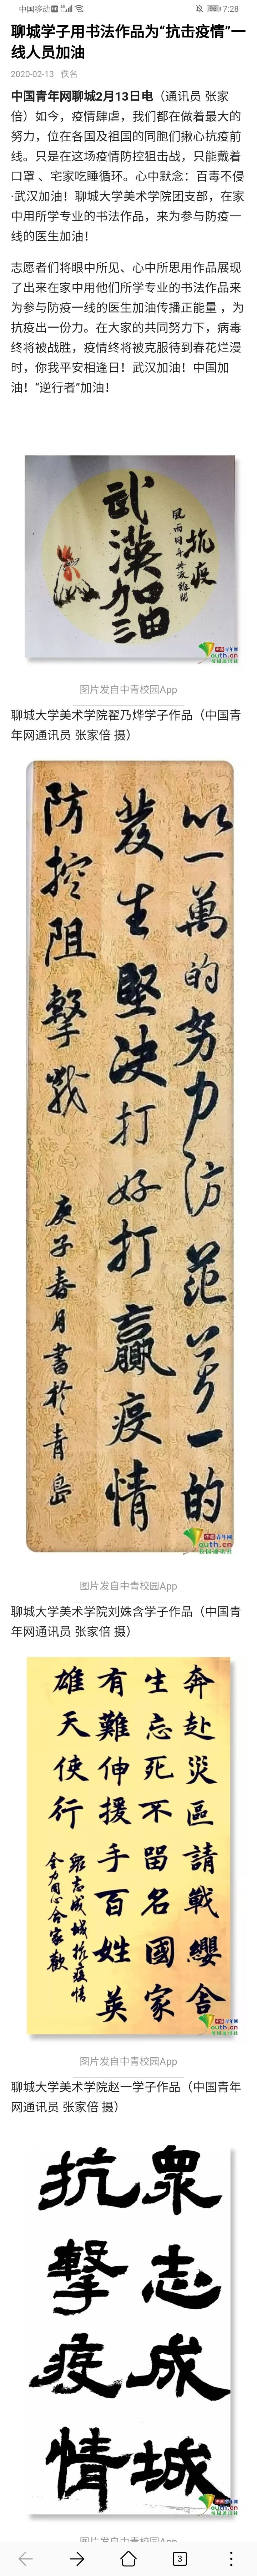 中国移动 HD 4G
7:28
聊城学子用书法作品为“抗击疫情”一
线人员加油
2020-02-13 佚名
中国青年网聊城2月13日电（通讯员 张家
倍）如今，疫情肆虐，我们都在做着最大的
努力，位在各国及祖国的同胞们揪心抗疫前
线。只是在这场疫情防控狙击战，只能戴着
口罩 、宅家吃睡循环。心中默念：百毒不侵
·武汉加油！聊城大学美术学院团支部，在家
中用所学专业的书法作品，来为参与防疫一
线的医生加油！
志愿者们将眼中所见、心中所思用作品展现
了出来在家中用他们所学专业的书法作品来
为参与防疫一线的医生加油传播正能量 ，为
抗疫出一份力。在大家的共同努力下，病毒
终将被战胜，疫情终将被克服待到春花烂漫
时，你我平安相逢日！武汉加油！中国加
油！“逆行者”加油！
抗疫
風雨同舟共渡難關
武漢加油
中国青年网
youth.cn
图片发自中青校园App
聊城大学美术学院翟乃烨学子作品（中国青
年网通讯员 张家倍 摄）
以一萬的努力防范萬一的
發生堅決打好打贏疫情
防控阻擊戰
庚子春月書於青島
中国青年网
youth.cn
校园通讯社
图片发自中青校园App
聊城大学美术学院刘姝含学子作品（中国青
年网通讯员 张家倍 摄）
奔赴災區請戰纓舍
生忘死不留名國家
有難伸援手百姓英
雄天使行
眾志成城抗疫情
全力同心合家歡
中国青年网
youth.cn
校园通讯社
图片发自中青校园App
聊城大学美术学院赵一学子作品（中国青年
网通讯员 张家倍 摄）
眾志成城
抗擊疫情
中国青年网
youth.cn
校园通讯社
图片发自中青校园App
3